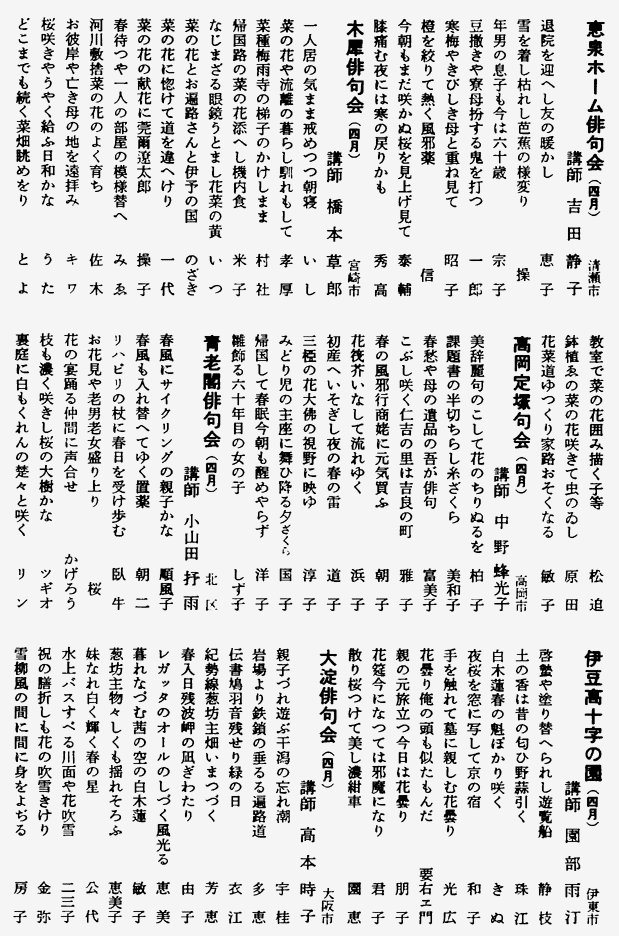 恵泉ホーム俳句会（四月）
清瀬市
講師 吉田静子
退院を迎へし友の暖かし 恵子
雪を着し枯れし芭蕉の様変り 操
年男の息子も今は六十歳 宗子
豆撒きや寮母扮する鬼を打つ 一郎
寒梅やきびしき母と重ね見て 昭子
橙を絞りて熱く風邪薬 信
今朝もまだ咲かぬ桜を見上げ見て 泰輔
膝痛む夜には寒の戻りかも 秀高
木犀俳句会（四月）
宮崎市
講師 橋本草郎
一人居の気まま戒めつつ朝寝 いし
菜の花や流離の暮らし馴れもして 孝厚
菜種梅雨寺の梯子のかけしまま 村社
帰国路の菜の花添へし機内食 米子
なじまざる眼鏡うとまし花菜の黄 いつ
菜の花とお遍路さんと伊予の国 のざき
菜の花に惚けて道を違へけり 一代
菜の花の献花に莞爾遼太郎 操子
春待つや一人の部屋の模様替へ みゑ
河川敷捨菜の花のよく育ち 佐木
お彼岸や亡き母の地を遠拝み キワ
桜咲きやうやく給ふ日和かな うた
どこまでも続く菜畑眺めをり とよ
教室で菜の花囲み描く子等 松迫
鉢植ゑの菜の花咲きて虫のゐし 原田
花菜道ゆつくり家路おそくなる 敏子
高岡定塚句会（四月）
高岡市
講師 中野蜂光子
美辞麗句のこして花のちりぬるを 柏子
課題書の半切ちらし糸ざくら 美和子
春愁や母の遺品の吾が俳句 富美子
こぶし咲く仁吉の里は吉良の町 雅子
春の風邪行商姥に元気買ふ 朝子
花筏芥いなして流れゆく 浜子
初産へいそぎし夜の春の雷 道子
三椏の花大佛の視野に映ゆ 淳子
みどり児の主座に舞ひ降る夕ざくら 国子
帰国して春眠今朝も醒めやらず 洋子
雛飾る六十年目の女の子 しず子
青老閣俳句会（四月）
北区
講師 小山田抒雨
春風にサイクリングの親子かな 順風子
春風も入れ替へてゆく置薬 朝二
リハビリの杖に春日を受け歩む 臥牛
お花見や老男老女盛り上り 桜
花の宴踊る仲間に声合せ かげろう
枝も濃く咲きし桜の大樹かな ツギオ
裏庭に白もくれんの楚々と咲く リン
伊豆高十字の園（四月）
伊東市
講師 園部雨汀
啓蟄や塗り替へられし遊覧船 静枝
土の香は昔の匂ひ野蒜引く 珠江
白木蓮春の魁ぽかり咲く きぬ
夜桜を窓に写して京の宿 和子
手を触れて墓に親しむ花曇り 光広
花曇り俺の頭も似たもんだ 要右ヱ門
親の元旅立つ今日は花曇り 朋子
花筵今になつては邪魔になり 君子
散り桜つけて美し濃紺車 園恵
大淀俳句会（四月）
大阪市
講師 高本時子
親子づれ遊ぶ干潟の忘れ潮 宇桂
岩場より鉄鎖の垂るる遍路道 多恵
伝書鳩羽音残せり緑の日 衣江
紀勢線葱坊主畑いまつづく 芳恵
春入日残波岬の凪ぎわたり 由子
レガッタのオールのしづく風光る 恵美
暮れなづむ茜の空の白木蓮 敏子
葱坊主物々しくも揺れそろふ 恵美子
妹なれ白く輝く春の星 公代
水上バスすべる川面や花吹雪 二三子
祝の膳折しも花の吹雪きけり 金弥
雪柳風の間に間に身をよぢる 房子